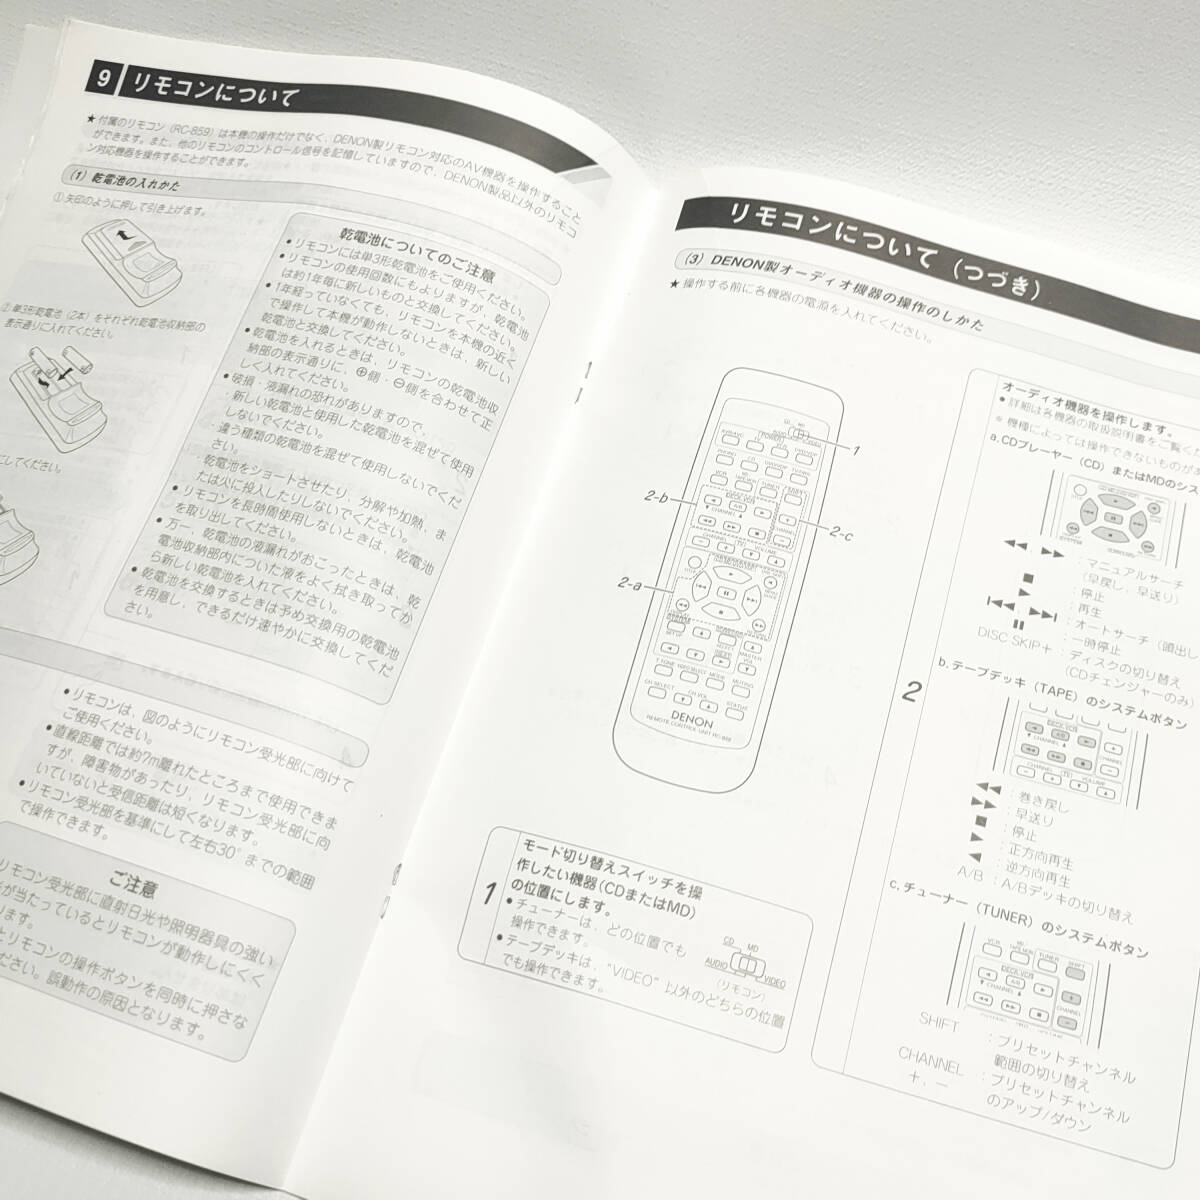 9 リモコンについて
★付属のリモコン（RC-859）は本機の操作だけでなく、DENON製リモコン対応のAV機器を操作すること
ができます。また、他のリモコンのコントロール信号を記憶していますので、DENON製品以外のリモコ
ン対応機器を操作することができます。
(1) 乾電池の入れかた
①矢印のように押して引き上げます。
②単3形乾電池（2本）をそれぞれ乾電池収納部の
表示通りに入れてください。
にしてください。
乾電池についてのご注意
●リモコンには単3形乾電池をご使用ください。
●リモコンの使用回数にもよりますが、乾電池
は約1年毎に新しいものと交換してください。
●1年経っていなくても、リモコンを本機の近く
で操作して本機が動作しないときは、新しい
乾電池と交換してください。
●乾電池を入れるときは、リモコンの乾電池収
納部の表示通りに、⊕側・⊖側を合わせて正
しく入れてください。
●破損・液漏れの恐れがありますので、
・新しい乾電池と使用した乾電池を混ぜて使用
しないでください。
・違う種類の乾電池を混ぜて使用しないでくだ
さい。
・乾電池をショートさせたり、分解や加熱、ま
たは火に投入したりしないでください。
●リモコンを長時間使用しないときは、乾電池
を取り出してください。
●万一、乾電池の液漏れがおこったときは、乾
電池収納部内についた液をよく拭き取ってか
ら新しい乾電池を入れてください。
●乾電池を交換するときは予め交換用の乾電池
を用意し、できるだけ速やかに交換してくだ
さい。
●リモコンは、図のようにリモコン受光部に向けて
ご使用ください。
●直線距離では約7m離れたところまで使用できま
すが、障害物があったり、リモコン受光部に向
いていないと受信距離は短くなります。
●リモコン受光部を基準にして左右30°までの範囲
で操作できます。
ご注意
リモコン受光部に直射日光や照明器具の強い
が当たっているとリモコンが動作しにくく
ります。
とリモコンの操作ボタンを同時に押さな
ださい。誤動作の原因となります。
リモコンについて（つづき）
(3) DENON製オーディオ機器の操作のしかた
★操作する前に各機器の電源を入れてください。
1
2-b
2-c
2-a
DENON
REMOTE CONTROL UNIT RC-859
1
モード切り替えスイッチを操
作したい機器（CDまたはMD）
の位置にします。
●チューナーは、どの位置でも
操作できます。
●テープデッキは、“VIDEO”以外のどちらの位置
でも操作できます。
CD MD
AUDIO VIDEO
（リモコン）
2
オーディオ機器を操作します。
●詳細は各機器の取扱説明書をご覧くだ
※機種によっては操作できないものがあ
a. CDプレーヤー（CD）またはMDのシス
◀◀, ▶▶ ：マニュアルサーチ
（早戻し、早送り）
■ ：停止
▶ ：再生
|◀◀, ▶▶| ：オートサーチ（頭出し
❚❚ ：一時停止
DISC SKIP+ ：ディスクの切り替え
（CDチェンジャーのみ）
b. テープデッキ（TAPE）のシステムボタン
◀◀ ：巻き戻し
▶▶ ：早送り
■ ：停止
▶ ：正方向再生
◀ ：逆方向再生
A/B ：A/Bデッキの切り替え
c. チューナー（TUNER）のシステムボタン
SHIFT ：プリセットチャンネル
範囲の切り替え
CHANNEL ：プリセットチャンネル
+、− のアップ/ダウン